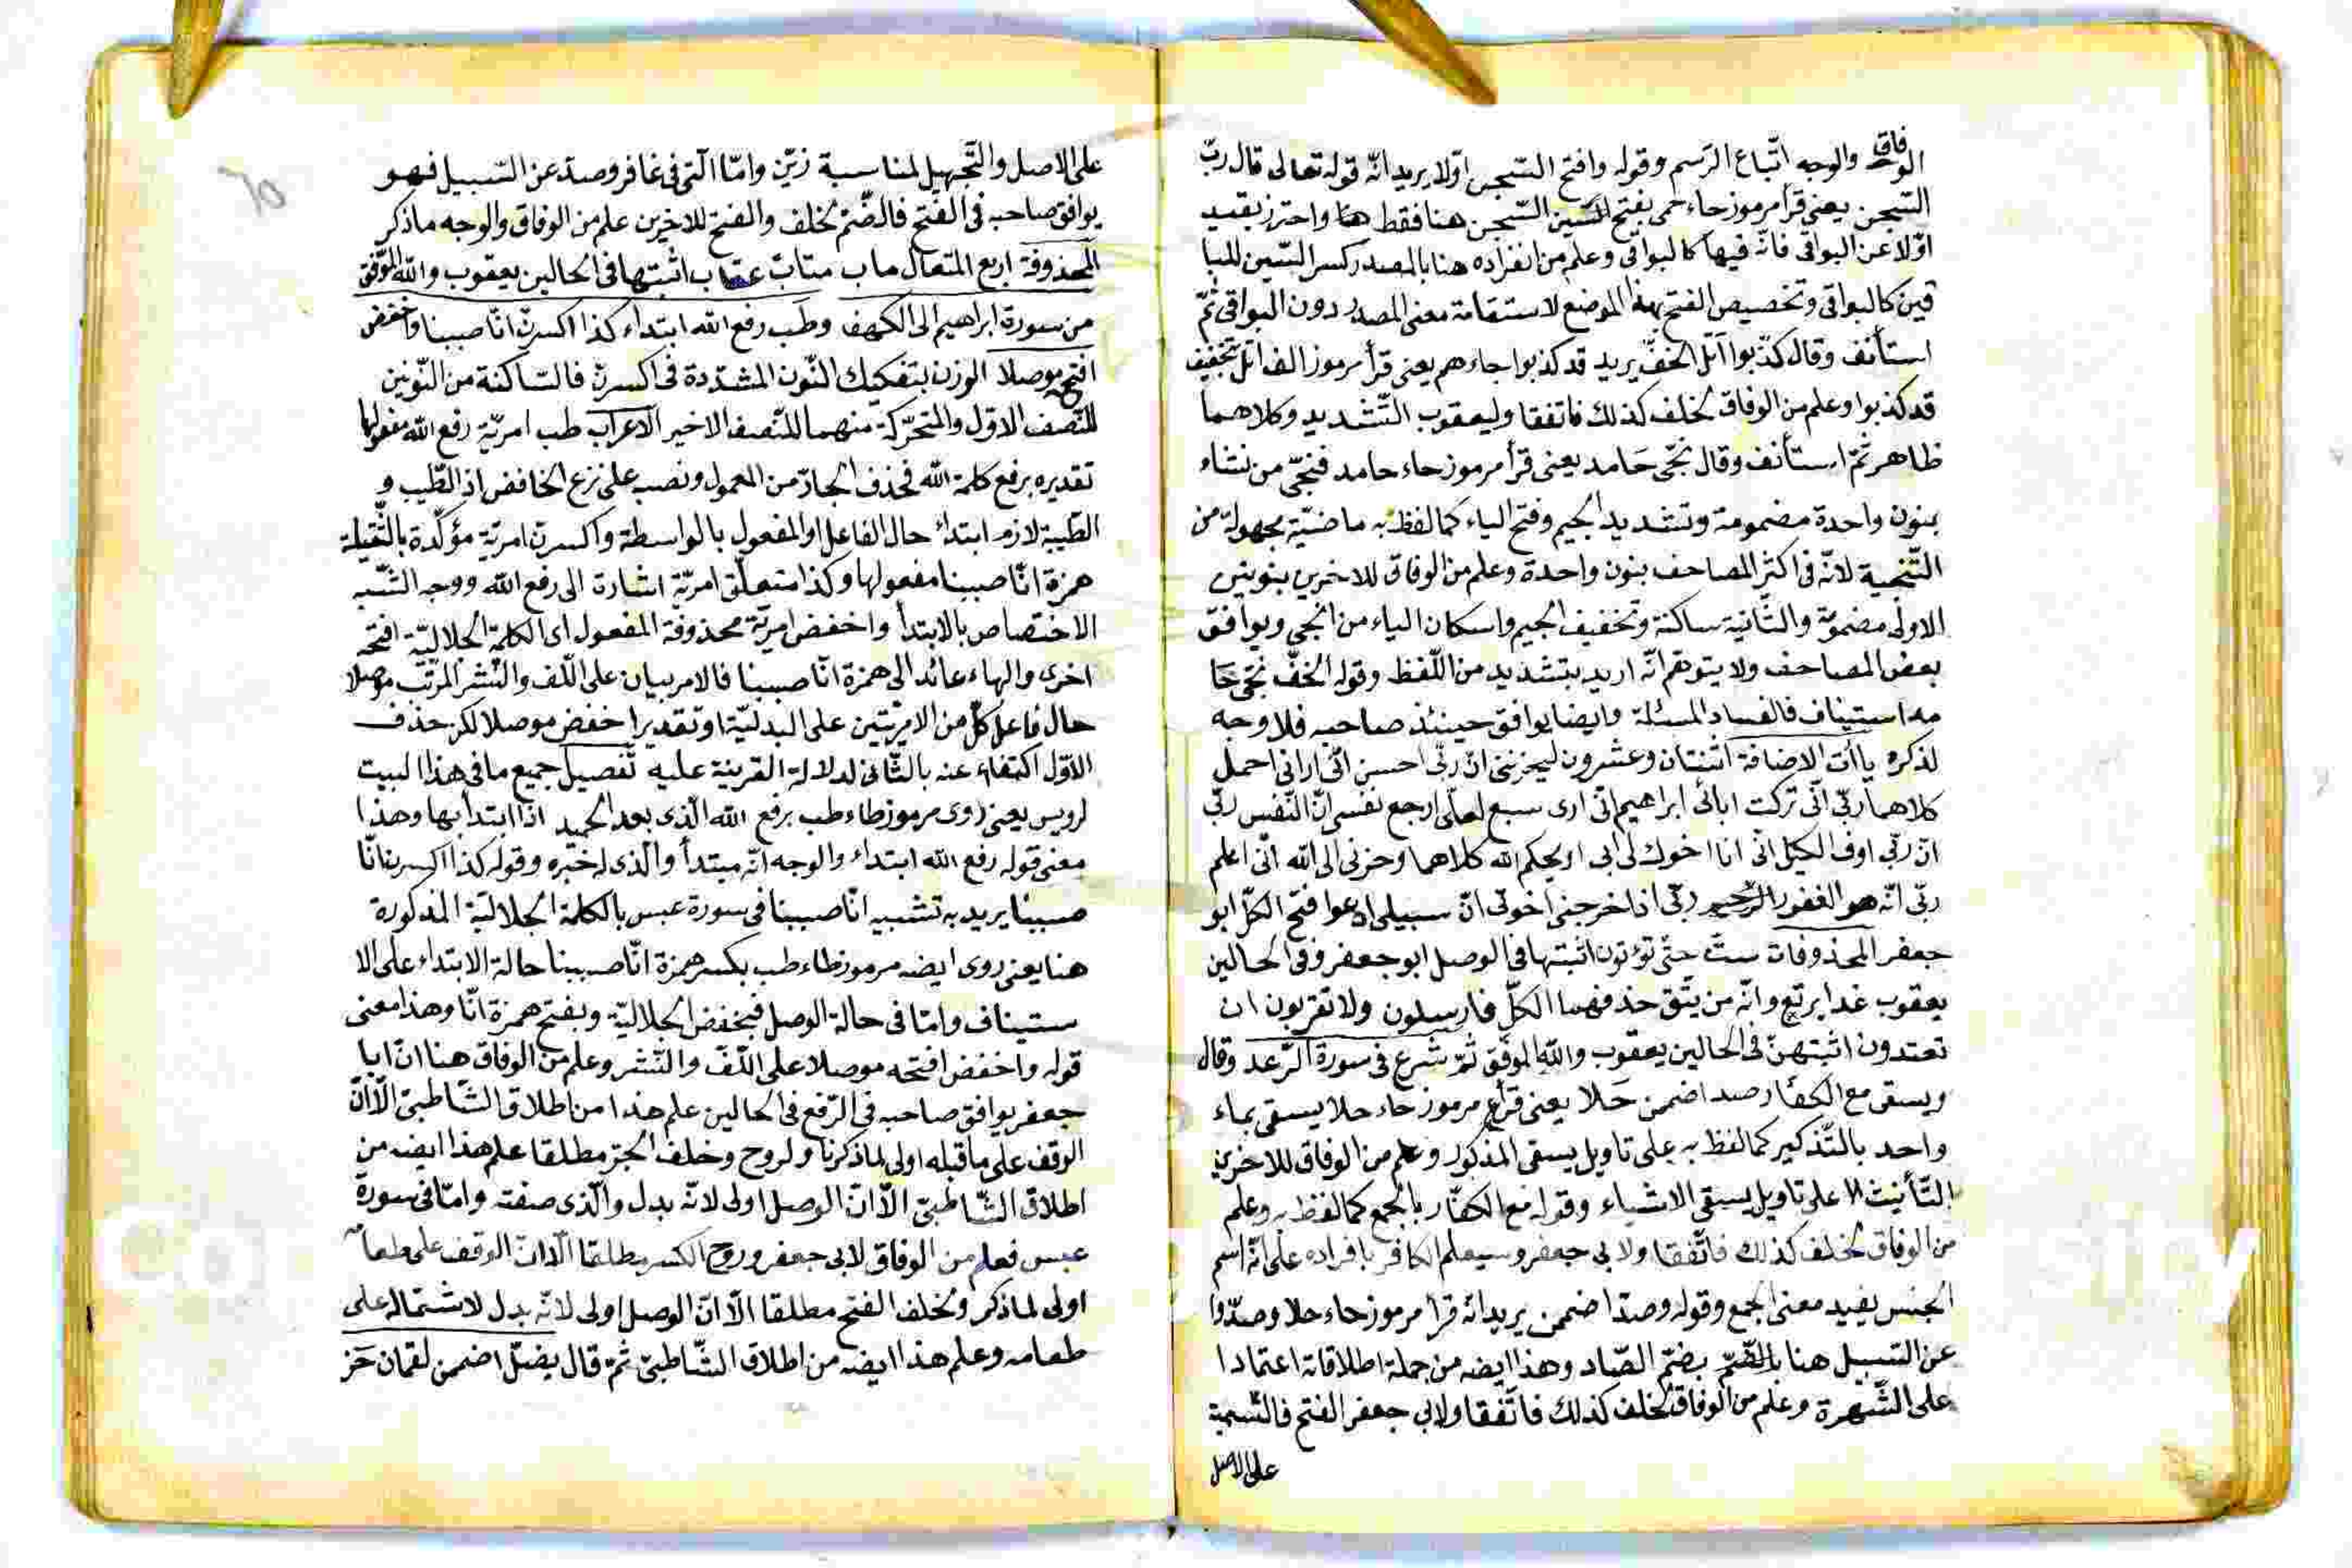 الوفاق والوجه اتّباع الرّسم وقوله وافتح السّجن اوّلا يريد انّه قوله تعالى قال ربّ
السّجن يعنى قرأ مرموز حاء حمى بفتح السّين السّجن هنا فقط هنا واحترز بقيد
اوّلا عن البواقى فانّه فيها كالبواقى وعلم من انفراده هنا بالمصدر كسر السّين للبا
قين كالبواقى وتخصيص الفتح بهذا الموضع لاستقامة معنى المصدر دون البواقى ثمّ
استأنف وقال كذّبوا اتل الخفّ يريد قد كذبوا جاءهم يعنى قرأ مرموز الف اتل بتخفيف
قد كذبوا وعلم من الوفاق لخلف كذلك فاتفقا وليعقوب التّشديد وكلاهما
ظاهر ثمّ استأنف وقال نجّى حَامد يعنى قرأ مرموز حاء حامد فنجّى من نشاء
بنون واحدة مضمومة وتشديد الجيم وفتح الياء كما لفظ به ماضيّة مجهولة من
التّنجية لانّه فى اكثر المصاحف بنون واحدة وعلم من الوفاق للاخرين بنونين
الاولى مضمومة والثّانية ساكنة وتخفيف الجيم واسكان الياء من انجى ويوافق
بعض المصاحف ولا يتوهم انّه اريد بتشديد من اللّفظ وقوله الخفّ نجّى حَا
مد استيناف فالفساد المسئلة وايضا يوافق حينئذ صاحبه فلا وجه
لذكره ياآت الاضافة اثنتان وعشرون ليحزننى انّ ربّى احسن انّى ارانى احمل
كلاهما ربّى انّى تركت ابائى ابراهيم انّى ارى سبع لعلّى ارجع نفسى انّ النّفس ربّى
انّ ربّى اوف الكيل انّى انا اخوك لى ابى او يحكم الله كلاهما وحزنى الى الله انّى اعلم
ربّى انّه هو الغفور الرّحيم ربّى اذ اخرجنى اخوتى انّ سبيلى ادعوا فتح الكلّ ابو
جعفر المحذوفات ستّ حتّى تؤتون اثبتها فى الوصل ابو جعفر وفى الحالين
يعقوب غدا يرتع وانّه من يتّق حذفهما الكلّ فارسلون ولا تقربون ان
تفندون اثبتهنّ فى الحالين يعقوب والله الموفّق ثمّ شرع فى سورة الرّعد وقال
ويسقى مع الكفّار صد اضممن حَلا يعنى قرأ مرموز حاء حلا يسقى بماء
واحد بالتّذكير كما لفظ به على تاويل يسقى المذكور وعلم من الوفاق للاخرين
التّأنيث على تاويل يسقى الاشياء وقوله مع الكفّار بالجمع كما لفظ به وعلم
من الوفاق لخلف كذلك فاتّفقا ولابى جعفر وسيعلم الكافر بافراده على انّه اسم
الجنس يفيد معنى الجمع وقوله وصدّا ضممن يريد انّه قرأ مرموز حاء حلا وصدّوا
عن السّبيل هنا بالضّمّ بضمّ الصّاد وهذا ايضه من جملة اطلاقاته اعتمادا
على الشّهرة وعلم من الوفاق لخلف كذلك فاتّفقا ولابى جعفر الفتح فالتّسمية
على الاصل
على الاصل والتّجهيل لمناسبة زيّن وامّا الّتى فى غافر وصدّ عن السّبيل فهو
يوافق صاحبه فى الفتح فالضّم لخلف والفتح للاخرين علم من الوفاق والوجه ما ذكر
المحذوفة اربع المتعال ماب متاب عقاب اثبتها فى الحالين يعقوب والله الموفّق
من سورة ابراهيم الى الكهف وطَب رفع الله ابتداء كذا اكسرنْ انّا صببنا واخفض
افتحه موصلا الوزن بتفكيك النّون المشدّدة فى اكسرنّ فالسّاكنة من النّونين
للنّصف الاوّل والمتحرّكة منهما للنّصف الاخير الاعراب طب امريّة رفع الله مفعولها
تقديره برفع كلمة الله فحذف الجارّ من المعمول ونصب على نزع الخافض اذ الطّيب و
الطّيبة لازم ابتداء حال الفاعل او المفعول بالواسطة واكسرن امريّة مؤكّدة بالثّقيلة
همزة انّا صببنا مفعولها وكذا متعلّق امريّة اشارة الى رفع الله ووجه الشّبه
الاختصاص بالابتدأ واخفض امريّة محذوفة المفعول اى الكلمة الجلاليّة افتحه
اخرى والهاء عائد الى همزة انّا صببنا فالامر بيان على اللّف والنّشر المرتّب موصلا
حال فاعل كلّ من الامريّتين على البدليّة او تقدير اخفض موصلا لكن حذف
الاوّل اكتفاء عنه بالثّانى لدلالة القرينة عليه تفصيل جميع ما فى هذا البيت
لرويس يعنى روى مرموز طاء طب برفع الله الّذى بعد الحميد اذا ابتدا بها وهذا
معنى قوله رفع الله ابتداء والوجه انّه مبتدأ والّذى له خبره وقوله كذا اكسرن انّا
صببنا يريد به تشبيه انّا صببنا فى سورة عبس بالكلمة الجلاليّة المذكورة
هنا يعنى روى ايضه مرموز طاء طب بكسر همزة انّا صببنا حالة الابتداء على الا
ستيناف وامّا فى حالة الوصل فبخفض الجلاليّة وبفتح همزة انّا وهذا معنى
قوله واخفض افتحه موصلا على اللّفّ والنّشر وعلم من الوفاق هنا انّ ابا
جعفر يوافق صاحبه فى الرّفع فى الحالين علم هذا من اطلاق الشّاطبىّ الّا انّ
الوقف على ما قبله اولى لما ذكرنا ولروح وخلف الجرّ مطلقا علم هذا ايضه من
اطلاق الشّاطبىّ الّا انّ الوصل اولى لانّه بدل والّذى صفته وامّا فى سورة
عبس فعلم من الوفاق لابى جعفر وروح الكسر مطلقا الّا انّ الوقف على طعامه
اولى لما ذكر ولخلف الفتح مطلقا الّا انّ الوصل اولى لانّه بدل لاشتماله على
طعامه وعلم هذا ايضه من اطلاق الشّاطبىّ ثمّ قال يضلّ اضممن لقمان حَز